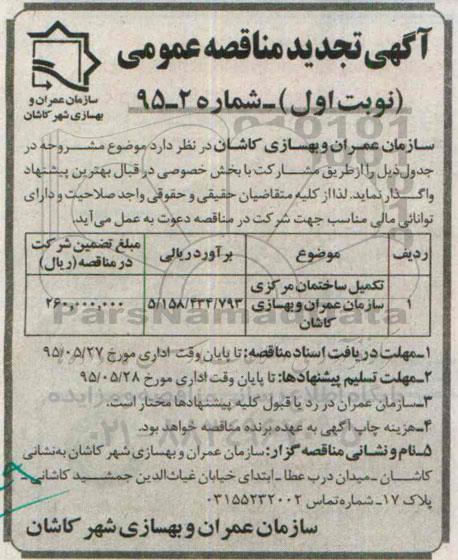 آگهی تجدید مناقصه عمومی
(نوبت اول) ـ شماره ۲ـ۹۵
سازمان عمران و
بهسازی شهر کاشان
سازمان عمران و بهسازی کاشان در نظر دارد موضوع مشروحه در
جدول ذیل را از طریق مشارکت با بخش خصوصی در قبال بهترین پیشنهاد
واگذار نماید. لذا از کلیه متقاضیان حقیقی و حقوقی واجد صلاحیت و دارای
توانائی مالی مناسب جهت شرکت در مناقصه دعوت به عمل می‌آید.
ردیف موضوع برآورد ریالی مبلغ تضمین شرکت در مناقصه (ریال)
۱ تکمیل ساختمان مرکزی سازمان عمران و بهسازی کاشان ۵/۱۵۸/۴۳۴/۷۹۳ ۲۶۰,۰۰۰,۰۰۰
ParsNamadData
۱ـ مهلت دریافت اسناد مناقصه: تا پایان وقت اداری مورخ ۹۵/۰۵/۲۷
۲ـ مهلت تسلیم پیشنهادها: تا پایان وقت اداری مورخ ۹۵/۰۵/۲۸
۳ـ سازمان عمران در رد یا قبول کلیه پیشنهادها مختار است.
۴ـ هزینه چاپ آگهی به عهده برنده مناقصه خواهد بود.
۵ـ نام و نشانی مناقصه گزار: سازمان عمران و بهسازی شهر کاشان به نشانی
کاشان ـ میدان درب عطا ـ ابتدای خیابان غیاث‌الدین جمشید کاشانی ـ
پلاک ۱۷ ـ شماره تماس ۰۳۱۵۵۲۳۲۰۰۲
سازمان عمران و بهسازی شهر کاشان